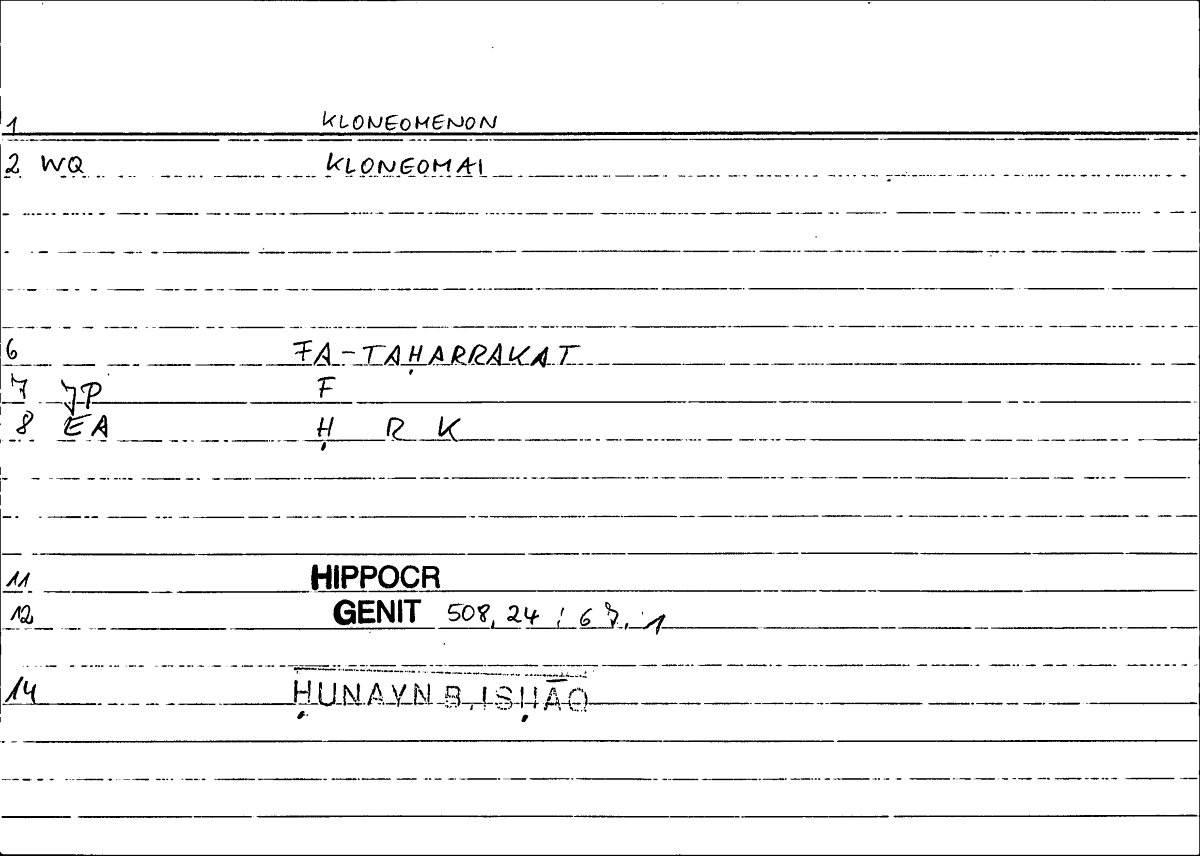 1 KLONEOMENON
2 WQ KLONEOMAI
6 FA-TAḤARRAKAT
7 JP F
8 EA Ḥ R K
11 HIPPOCR
12 GENIT 508, 24 : 67, 1
14 ḤUNAYN B. ISḤĀQ